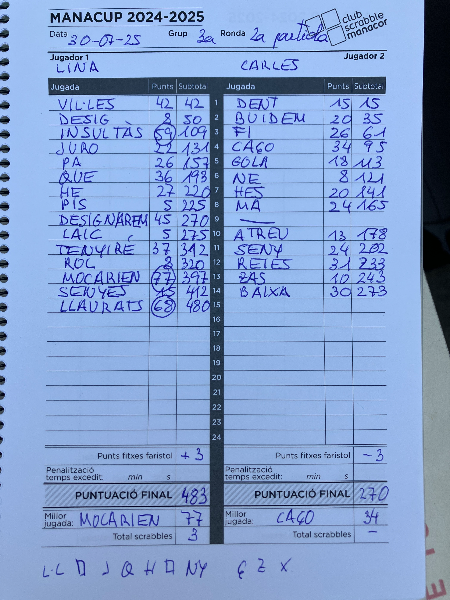 MANACUP 2024-2025
club scrabble manacor
Data 30-07-25 Grup 3a Ronda 2a partida
Jugador 1 Jugador 2
LINA CARLES
Jugada Punts Subtotal Jugada Punts Subtotal
VIL·LES 42 42 1 DENT 15 15
DESIG 8 50 2 BUIDEM 20 35
INSULTÀS 59 109 3 FI 26 61
JURO 22 131 4 CAGO 34 95
PA 26 157 5 GOLA 18 113
QUE 36 193 6 NE 8 121
HE 27 220 7 HES 20 141
PIS 5 225 8 MA 24 165
DESIGNÀREM 45 270 9 —
LAIC 5 275 10 ATREU 13 178
TENYIRÉ 37 312 11 SENY 24 202
ROL 8 320 12 REIES 31 233
MOCARIEN 77 397 13 ZAS 10 243
SENYES 15 412 14 BAIXA 30 273
LLAURATS 68 480 15
16
17
18
19
20
21
22
23
24
Punts fitxes faristol +3 Punts fitxes faristol -3
Penalització temps excedit: min s Penalització temps excedit: min s
PUNTUACIÓ FINAL 483 PUNTUACIÓ FINAL 270
Millor jugada: MOCARIEN 77 Millor jugada: CAGO 34
Total scrabbles 3 Total scrabbles —
L·L J Q H NY Ç Z X